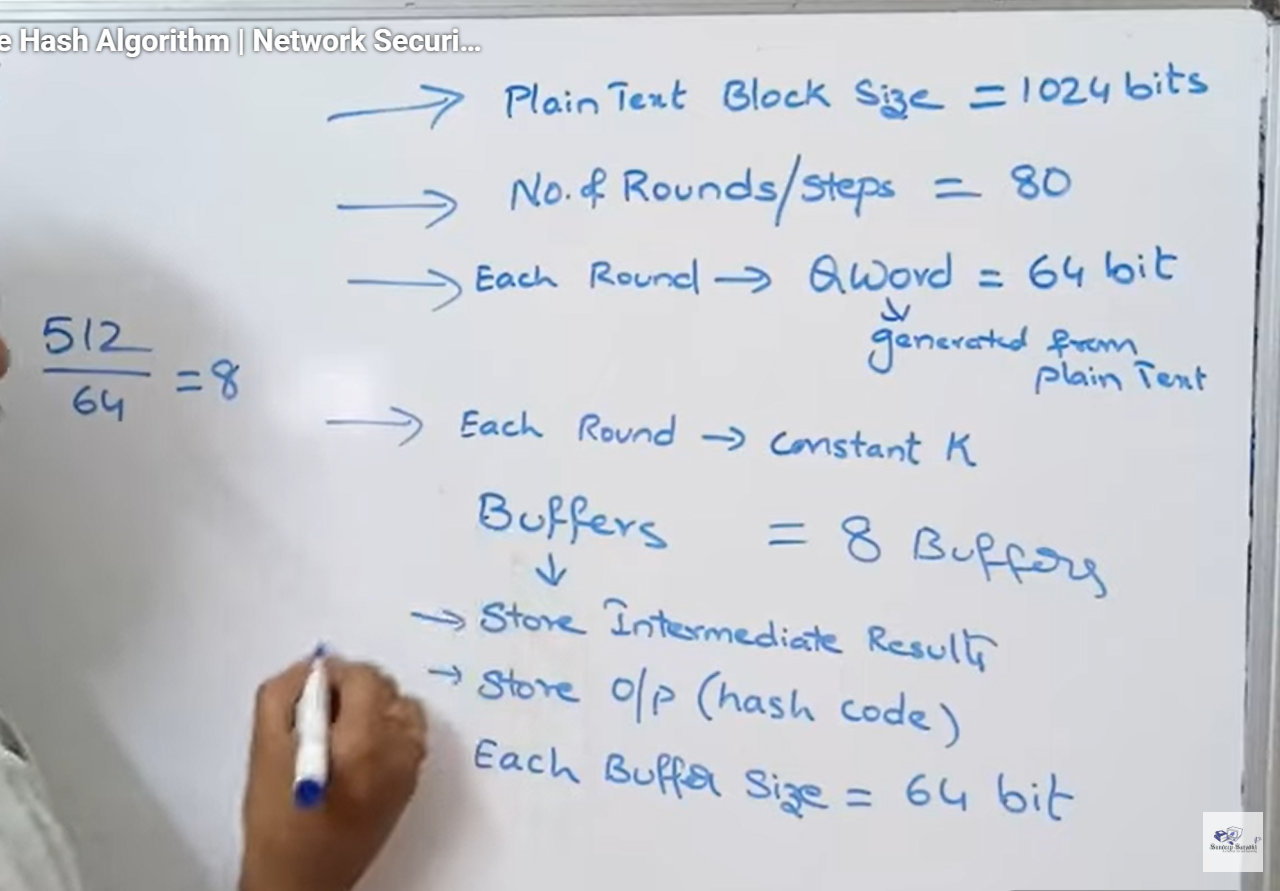 e Hash Algorithm | Network Securi...
→ Plain Text Block Size = 1024 bits
→ No. of Rounds/Steps = 80
→ Each Round → QWord = 64 bit
↓
generated from
plain Text
512
64
= 8
→ Each Round → Constant K
Buffers = 8 Buffers
↓
→ Store Intermediate Results
→ Store O/P (hash code)
Each Buffer Size = 64 bit